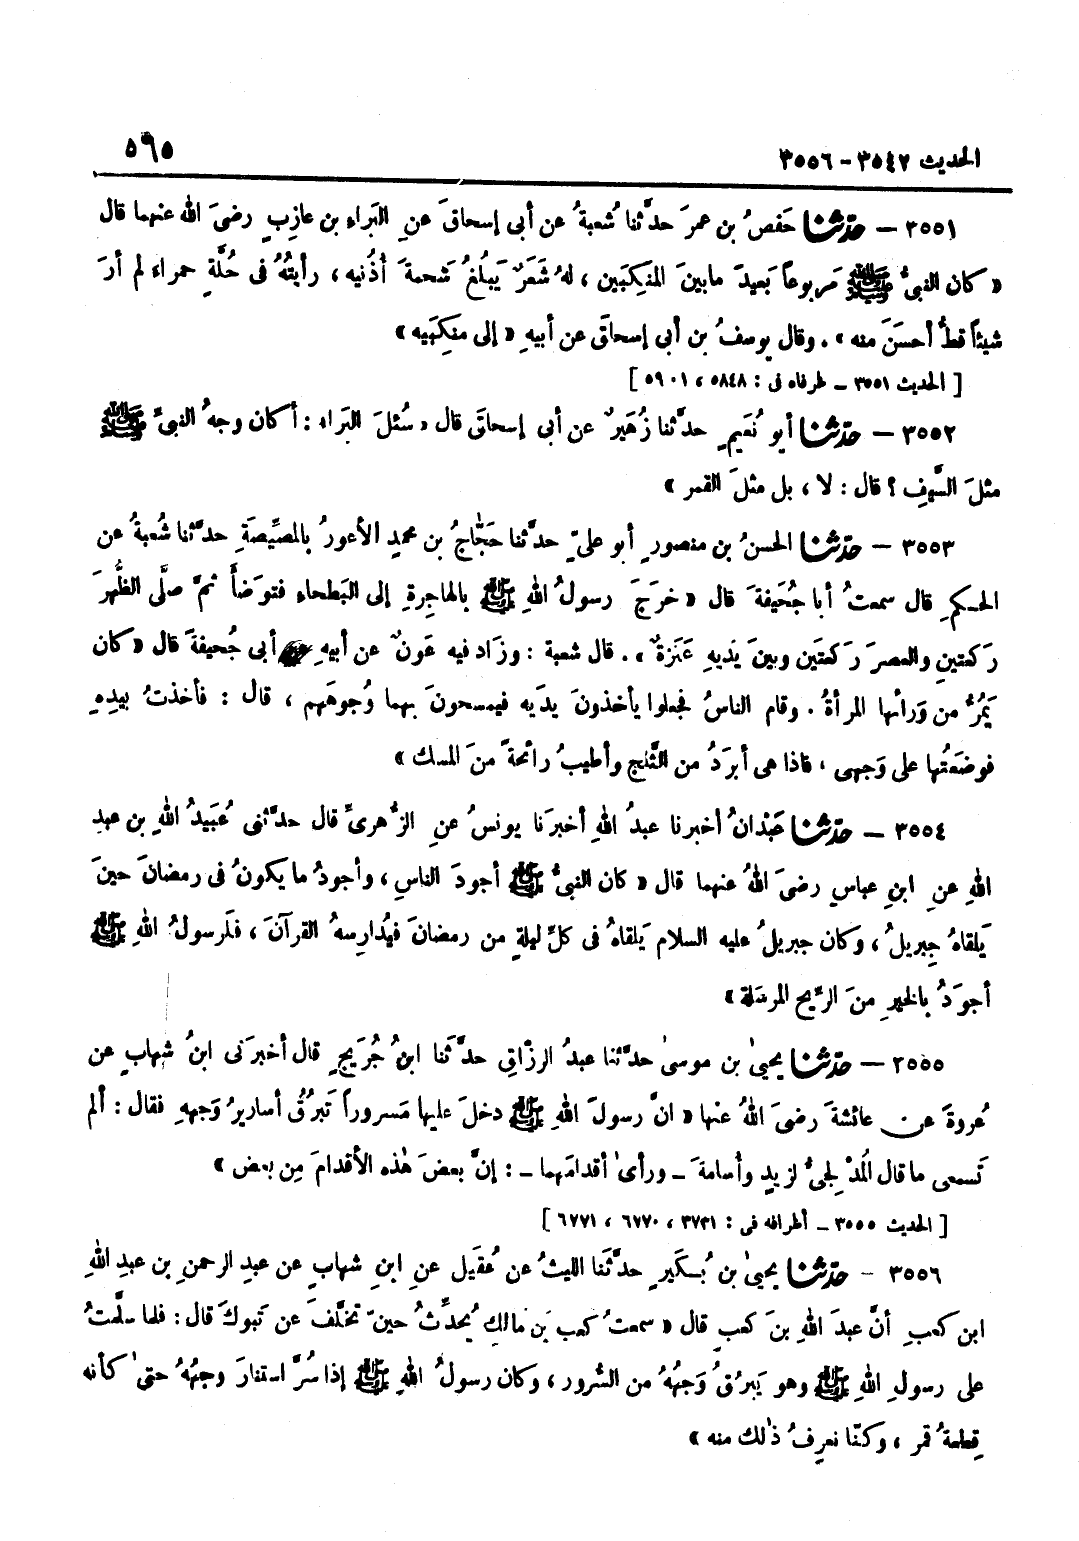 الحديث ٣٥٤٧ - ٣٥٥٦
٥٩٥
٣٥٥١ — حدّثنا حَفصُ بن عمرَ حدَّثنا شُعبةُ عن أبى إسحاقَ عنِ البَراءِ بن عازِبٍ رضىَ اللهُ عنهما قال
« كان النبىُّ ﷺ مَربوعاً بَعيدَ مابينَ المَنكِبَين ، لهُ شَعَرٌ يَبلُغُ شَحمةَ أُذُنيه ، رأيتُهُ فى حُلَّةٍ حمراءَ لم أرَ
شيئاً قطُّ أحسَنَ منه » . وقال يوسفُ بن أبى إسحاقَ عن أبيهِ « إلى منكِبَيه »
[ الحديث ٣٥٥١ ـ طرفاه فى : ٥٨٤٨ ، ٥٩٠١ ]
٣٥٥٢ — حدّثنا أبو نُعَيمٍ حدَّثنا زُهَيرٌ عن أبى إسحاقَ قال « سُئلَ البَراء : أكان وجهُ النبىِّ ﷺ
مثلَ السَّيفِ ؟ قال : لا ، بل مثلَ القمر »
٣٥٥٣ — حدّثنا الحسنُ بن منصورٍ أبو علىٍّ حدَّثنا حَجّاجُ بن محمدٍ الأعورُ بالمصِّيصَةِ حدَّثنا شُعبةُ عن
الحـكمِ قال سمعتُ أبا جُحَيفةَ قال « خرَجَ رسولُ اللهِ ﷺ بالهاجِرةِ إلى البَطحاءِ فتوَضأَ ثمَّ صلَّى الظُّهرَ
رَكعتينِ والعصرَ رَكعتَين وبينَ يدَيهِ عَنَزةٌ » . قال شعبة : وزاد فيه عَونٌ عن أبيهِ أبى جُحيفةَ قال « كان
يَمُرُّ من وَرائها المرأةُ . وقام الناسُ فجعلوا يأخذونَ يدَيه فيمسحونَ بهما وُجوهَهم ، قال : فأخذتُ بيدِهِ
فوضَعتُها على وَجهى ، فاذا هى أبرَدُ من الثَّلج وأطيبُ رائحةً منَ المسك »
٣٥٥٤ — حدّثنا عَبْدانُ أخبرنا عبدُ اللهِ أخبرَنا يونسُ عنِ الزُّهرىِّ قال حدَّثنى عُبَيدُ اللهِ بن عبدِ
اللهِ عنِ ابنِ عباسٍ رضىَ اللهُ عنهما قال « كان النبىُّ ﷺ أجودَ الناسِ ، وأجودُ ما يكونُ فى رمضانَ حينَ
يَلقاهُ جِبريلُ ، وكان جبريلُ عليه السلام يَلقاهُ فى كلِّ ليلةٍ من رمضانَ فيُدارِسهُ القرآنَ ، فلَرسولُ اللهِ ﷺ
أجوَدُ بالخيرِ منَ الرِّيح المرسَلة »
٢٥٥٥ — حدّثنا يحيىٰ بن موسىٰ حدَّثنا عبدُ الرزّاقِ حدَّثنا ابنُ جُرَيجٍ قال أخبرَنى ابنُ شهابٍ عن
عُروةَ عن عائشةَ رضىَ اللهُ عنها « انَّ رسولَ اللهِ ﷺ دخلَ عليها مَسروراً تَبرُقُ أساريرُ وَجههِ فقال : ألم
تَسمعى ما قال المُدْلجىُّ لزيدٍ وأسامةَ ـ ورأىٰ أقدامَهما ـ : إنَّ بعضَ هٰذه الأقدامَ مِن بعض »
[ الحديث ٣٥٥٥ ـ أطرافه فى : ٣٧٣١ ، ٦٧٧٠ ، ٦٧٧١ ]
٣٥٥٦ - حدّثنا يحيىٰ بن بُـكَيرٍ حدَّثَنا الليثُ عن عُقَيل عنِ ابنِ شهابٍ عن عبدِ الرحمنِ بن عبدِ اللهِ
ابن كعبٍ أنَّ عبدَ اللهِ بنَ كعبٍ قال « سمعتُ كعبَ بنَ مالكٍ يُحدِّثُ حينَ تخلَّفَ عن تَبوكَ قال : فلما سلَّمتُ
على رسولِ اللهِ ﷺ وهو يَبرُقُ وَجهُهُ من السُّرور ، وكان رسولُ اللهِ ﷺ إذا سُرَّ استنارَ وجهُهُ حتىٰ كأنه
قِطعةُ قمر ، وكنّا نعرِفُ ذٰلك منه »